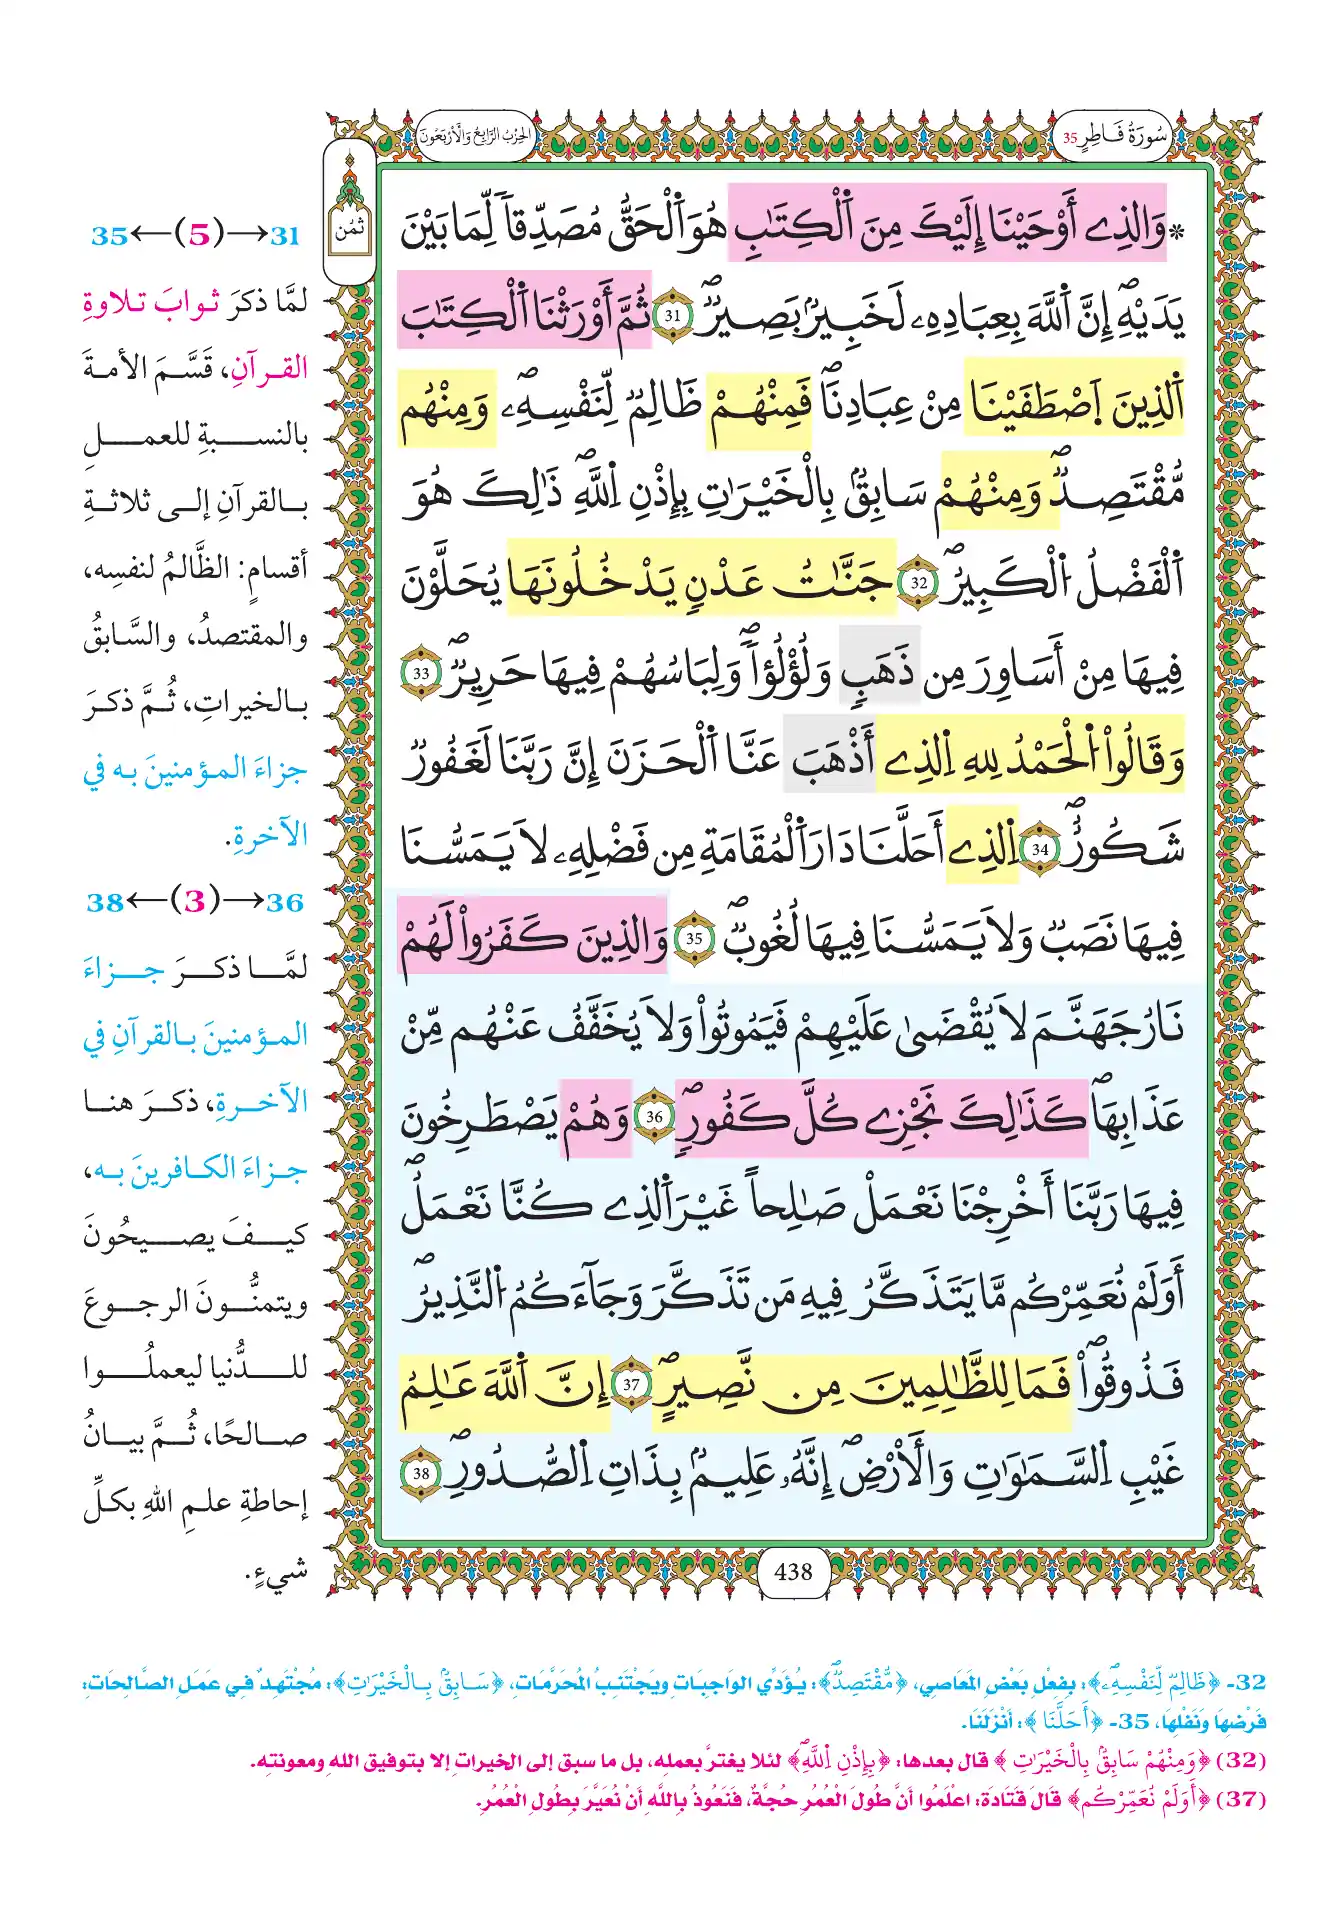 سُورَةُ فَاطِرٍ 35
الحِزْبُ الرَّابِعُ وَالْأَرْبَعُونَ
ثُمُن
* وَالذِے أَوْحَيْنَا إِلَيْكَ مِنَ اَ۬لْكِتَٰبِ هُوَ اَ۬لْحَقُّ مُصَدِّقاٗ لِّمَا بَيْنَ
يَدَيْهِۖ إِنَّ اَ۬للَّهَ بِعِبَادِهِۦ لَخَبِيرُۢ بَصِيرٞۖ 31 ثُمَّ أَوْرَثْنَا اَ۬لْكِتَٰبَ
اَ۬لذِينَ اَ۪صْطَفَيْنَا مِنْ عِبَادِنَاۖ فَمِنْهُمْ ظَالِمٞ لِّنَفْسِهِۦۖ وَمِنْهُم
مُّقْتَصِدٞۖ وَمِنْهُمْ سَابِقُۢ بِالْخَيْرَٰتِ بِإِذْنِ اِ۬للَّهِۖ ذَٰلِكَ هُوَ
اَ۬لْفَضْلُ اُ۬لْكَبِيرُۖ 32 جَنَّٰتُ عَدْنٖ يَدْخُلُونَهَا يُحَلَّوْنَ
فِيهَا مِنْ أَسَاوِرَ مِن ذَهَبٖ وَلُؤْلُؤاٗۖ وَلِبَاسُهُمْ فِيهَا حَرِيرٞۖ 33
وَقَالُواْ اُ۬لْحَمْدُ لِلهِ اِ۬لذِے أَذْهَبَ عَنَّا اَ۬لْحَزَنَ إِنَّ رَبَّنَا لَغَفُورٞ
شَكُورٌۖ 34 اِ۬لذِے أَحَلَّنَا دَارَ اَ۬لْمُقَامَةِ مِن فَضْلِهِۦ لَا يَمَسُّنَا
فِيهَا نَصَبٞ وَلَا يَمَسُّنَا فِيهَا لُغُوبٞۖ 35 وَالذِينَ كَفَرُواْ لَهُمْ
نَارُ جَهَنَّمَ لَا يُقْضَىٰ عَلَيْهِمْ فَيَمُوتُواْ وَلَا يُخَفَّفُ عَنْهُم مِّنْ
عَذَابِهَاۖ كَذَٰلِكَ نَجْزِے كُلَّ كَفُورٖۖ 36 وَهُمْ يَصْطَرِخُونَ
فِيهَا رَبَّنَا أَخْرِجْنَا نَعْمَلْ صَٰلِحاً غَيْرَ اَ۬لذِے كُنَّا نَعْمَلُۖ
أَوَلَمْ نُعَمِّرْكُم مَّا يَتَذَكَّرُ فِيهِ مَن تَذَكَّرَ وَجَآءَكُمُ اُ۬لنَّذِيرُۖ
فَذُوقُواْۖ فَمَا لِلظَّٰلِمِينَ مِن نَّصِيرٍۖ 37 إِنَّ اَ۬للَّهَ عَٰلِمُ
غَيْبِ اِ۬لسَّمَٰوَٰتِ وَالْأَرْضِۖ إِنَّهُۥ عَلِيمُۢ بِذَاتِ اِ۬لصُّدُورِۖ 38
438
31→(5)←35
لمَّا ذكرَ ثوابَ تلاوةِ
القرآنِ، قَسَّمَ الأمةَ
بالنسبةِ للعملِ
بالقرآنِ إلى ثلاثةِ
أقسامٍ: الظَّالمُ لنفسِه،
والمقتصدُ، والسَّابقُ
بالخيراتِ، ثُمَّ ذكرَ
جزاءَ المؤمنينَ به في
الآخرةِ.
36→(3)←38
لمَّا ذكرَ جزاءَ
المؤمنينَ بالقرآنِ في
الآخرةِ، ذكرَ هنا
جزاءَ الكافرينَ به،
كيفَ يصيحُونَ
ويتمنُّونَ الرجوعَ
للدُّنيا ليعملُوا
صالحًا، ثُمَّ بيانُ
إحاطةِ علمِ اللهِ بكلِّ
شيءٍ.
32- ﴿ظَالِمٞ لِّنَفْسِهِۦۖ﴾: بِفِعْلِ بَعْضِ المَعَاصِي، ﴿مُّقْتَصِدٞۖ﴾: يُؤَدِّي الوَاجِبَاتِ وَيَجْتَنِبُ المُحَرَّمَاتِ، ﴿سَابِقُۢ بِالْخَيْرَٰتِ﴾: مُجْتَهِدٌ فِي عَمَلِ الصَّالِحَاتِ:
فَرْضِهَا وَنَفْلِهَا، 35- ﴿أَحَلَّنَا﴾: أَنْزَلَنَا.
(32) ﴿وَمِنْهُمْ سَابِقُۢ بِالْخَيْرَٰتِ﴾ قال بعدها: ﴿بِإِذْنِ اِ۬للَّهِۖ﴾ لئلا يغترَّ بعملِه، بل ما سبق إلى الخيراتِ إلا بتوفيق اللهِ ومعونتِه.
(37) ﴿أَوَلَمْ نُعَمِّرْكُم﴾ قَالَ قَتَادَة: اعْلَمُوا أَنَّ طُولَ الْعُمُرِ حُجَّةٌ، فَنَعُوذُ بِاللَّهِ أَنْ نُعَيَّرَ بِطُولِ الْعُمُرِ.